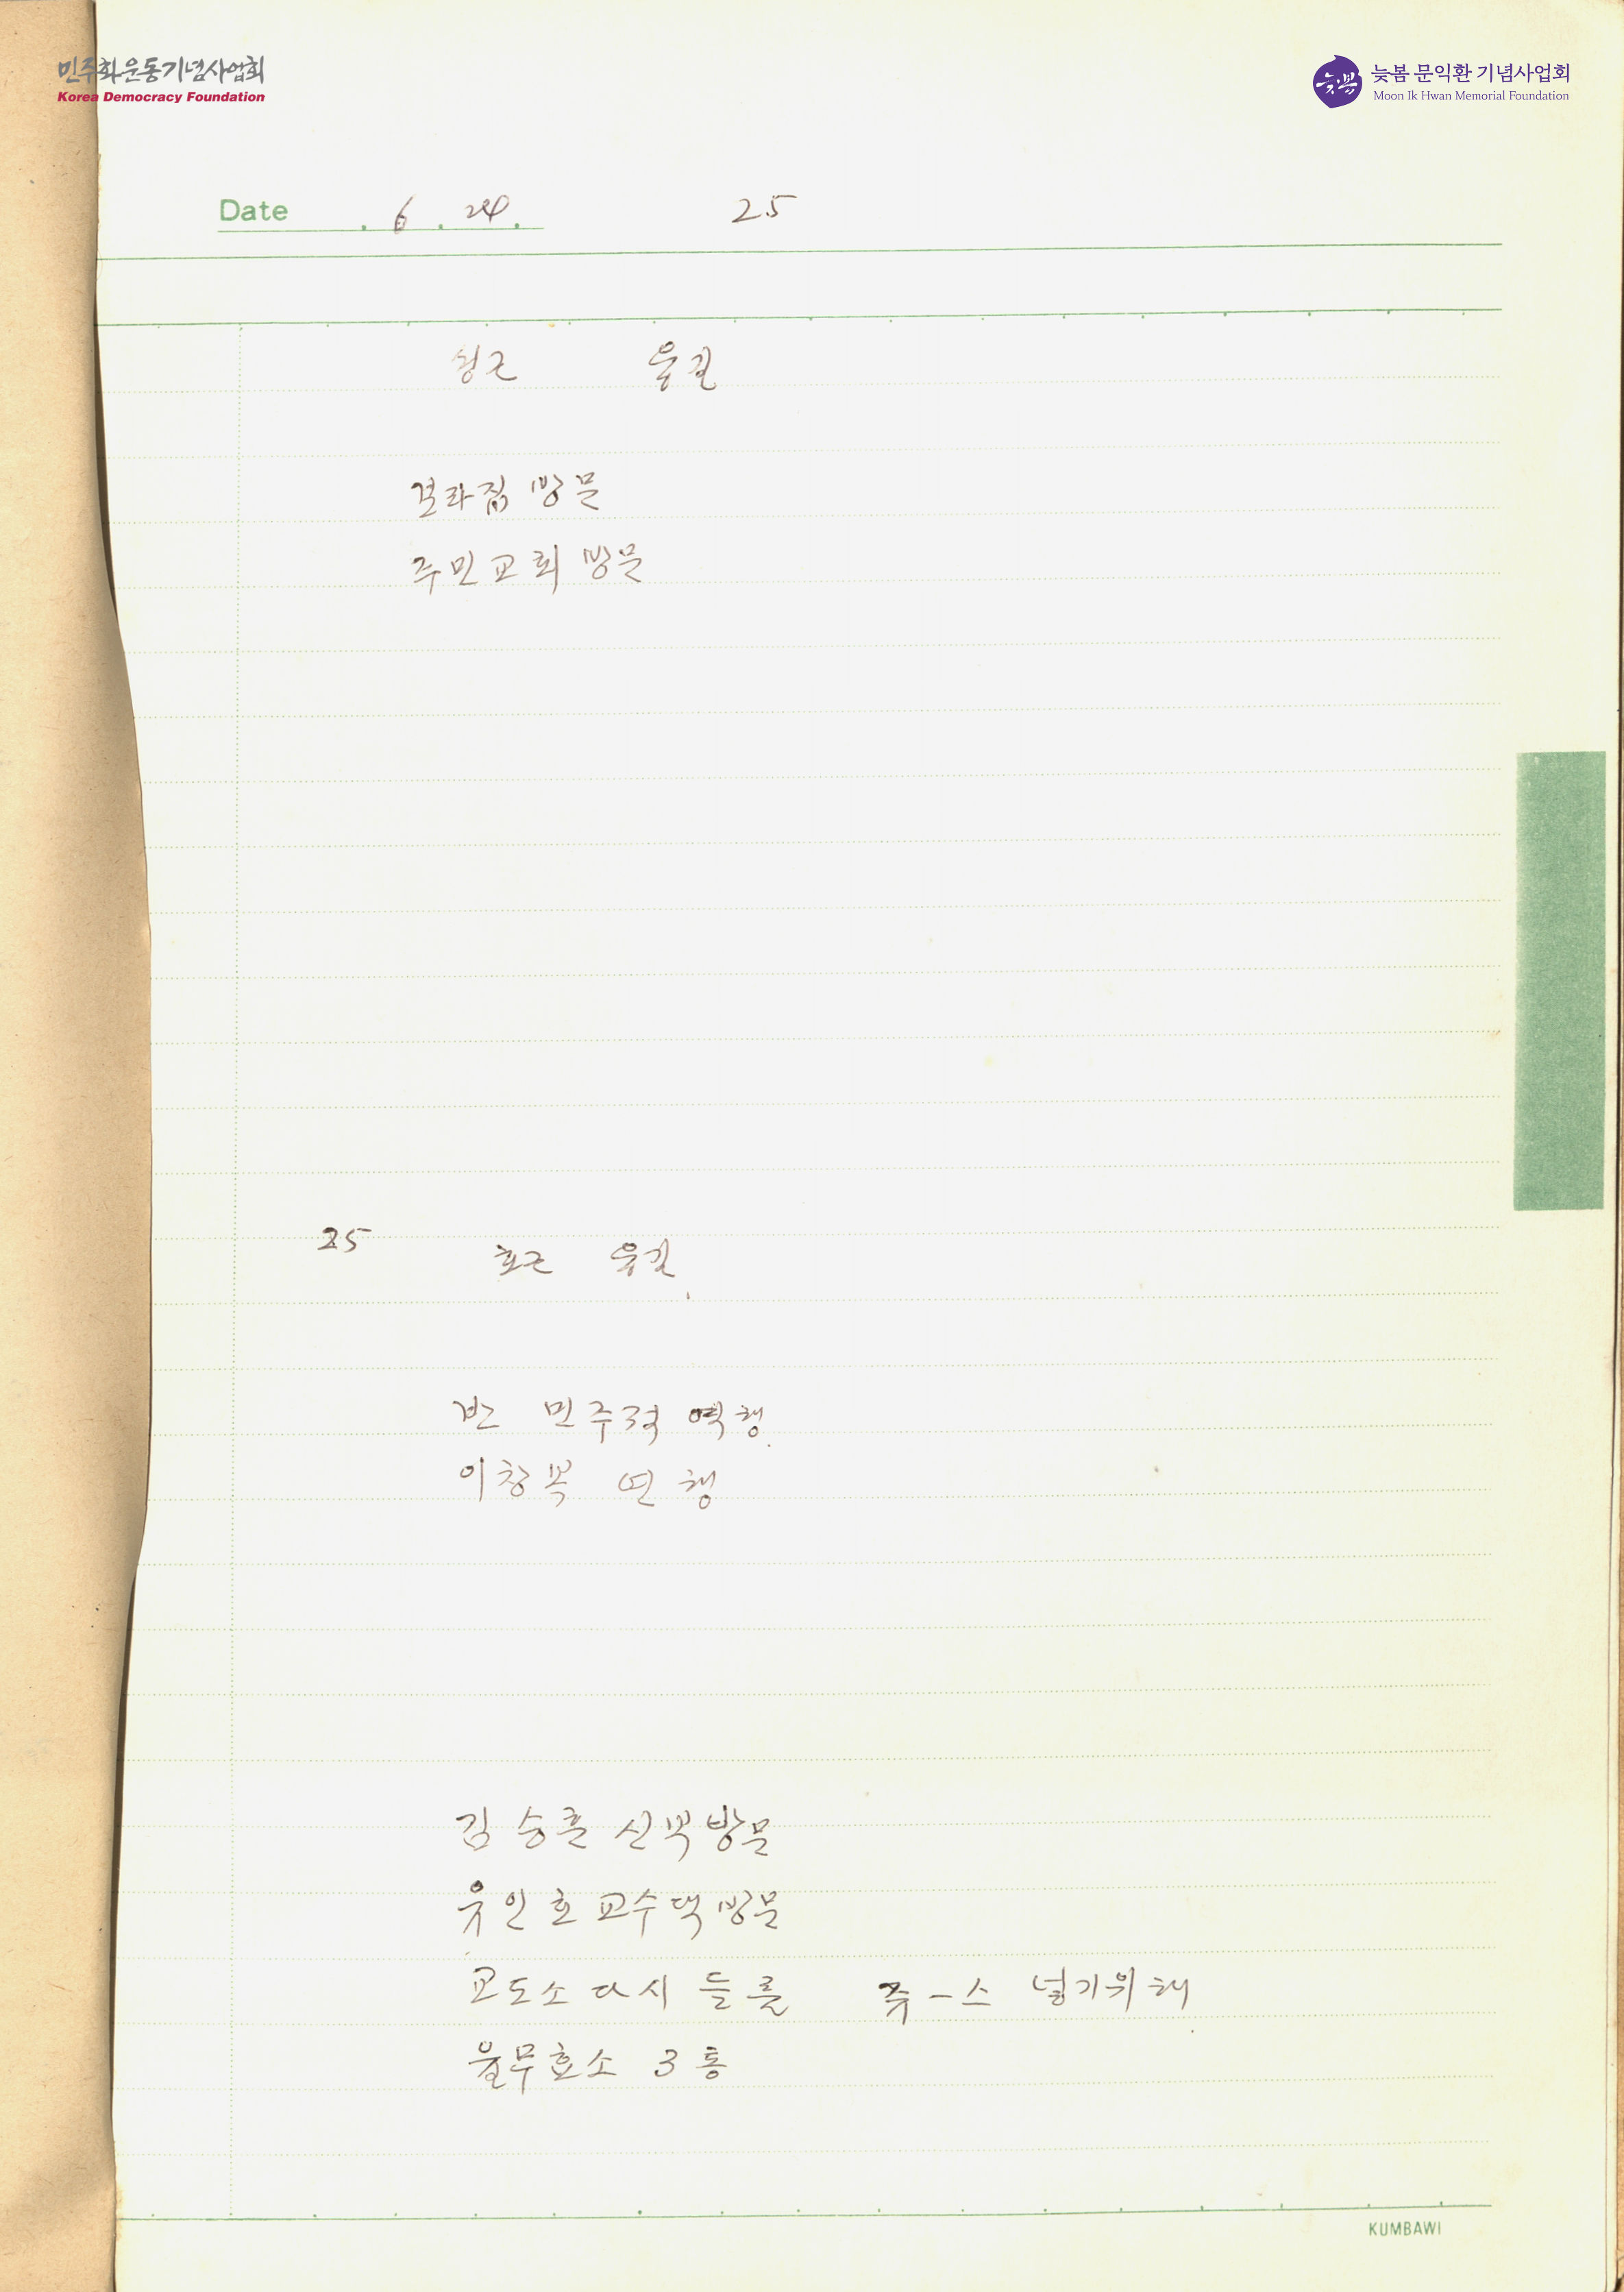 민주화운동기념사업회
Korea Democracy Foundation
늦봄
늦봄 문익환 기념사업회
Moon Ik Hwan Memorial Foundation
Date . 6 . 24. 25
성근 용길
보라집 방문
주민교회 방문
25 호근 용길
반 민주적 역행
이창복 연행
김승훈 신부방문
유인호 교수댁 방문
교도소 다시 들름 쥬-스 넣기위해
율무효소 3통
KUMBAWI